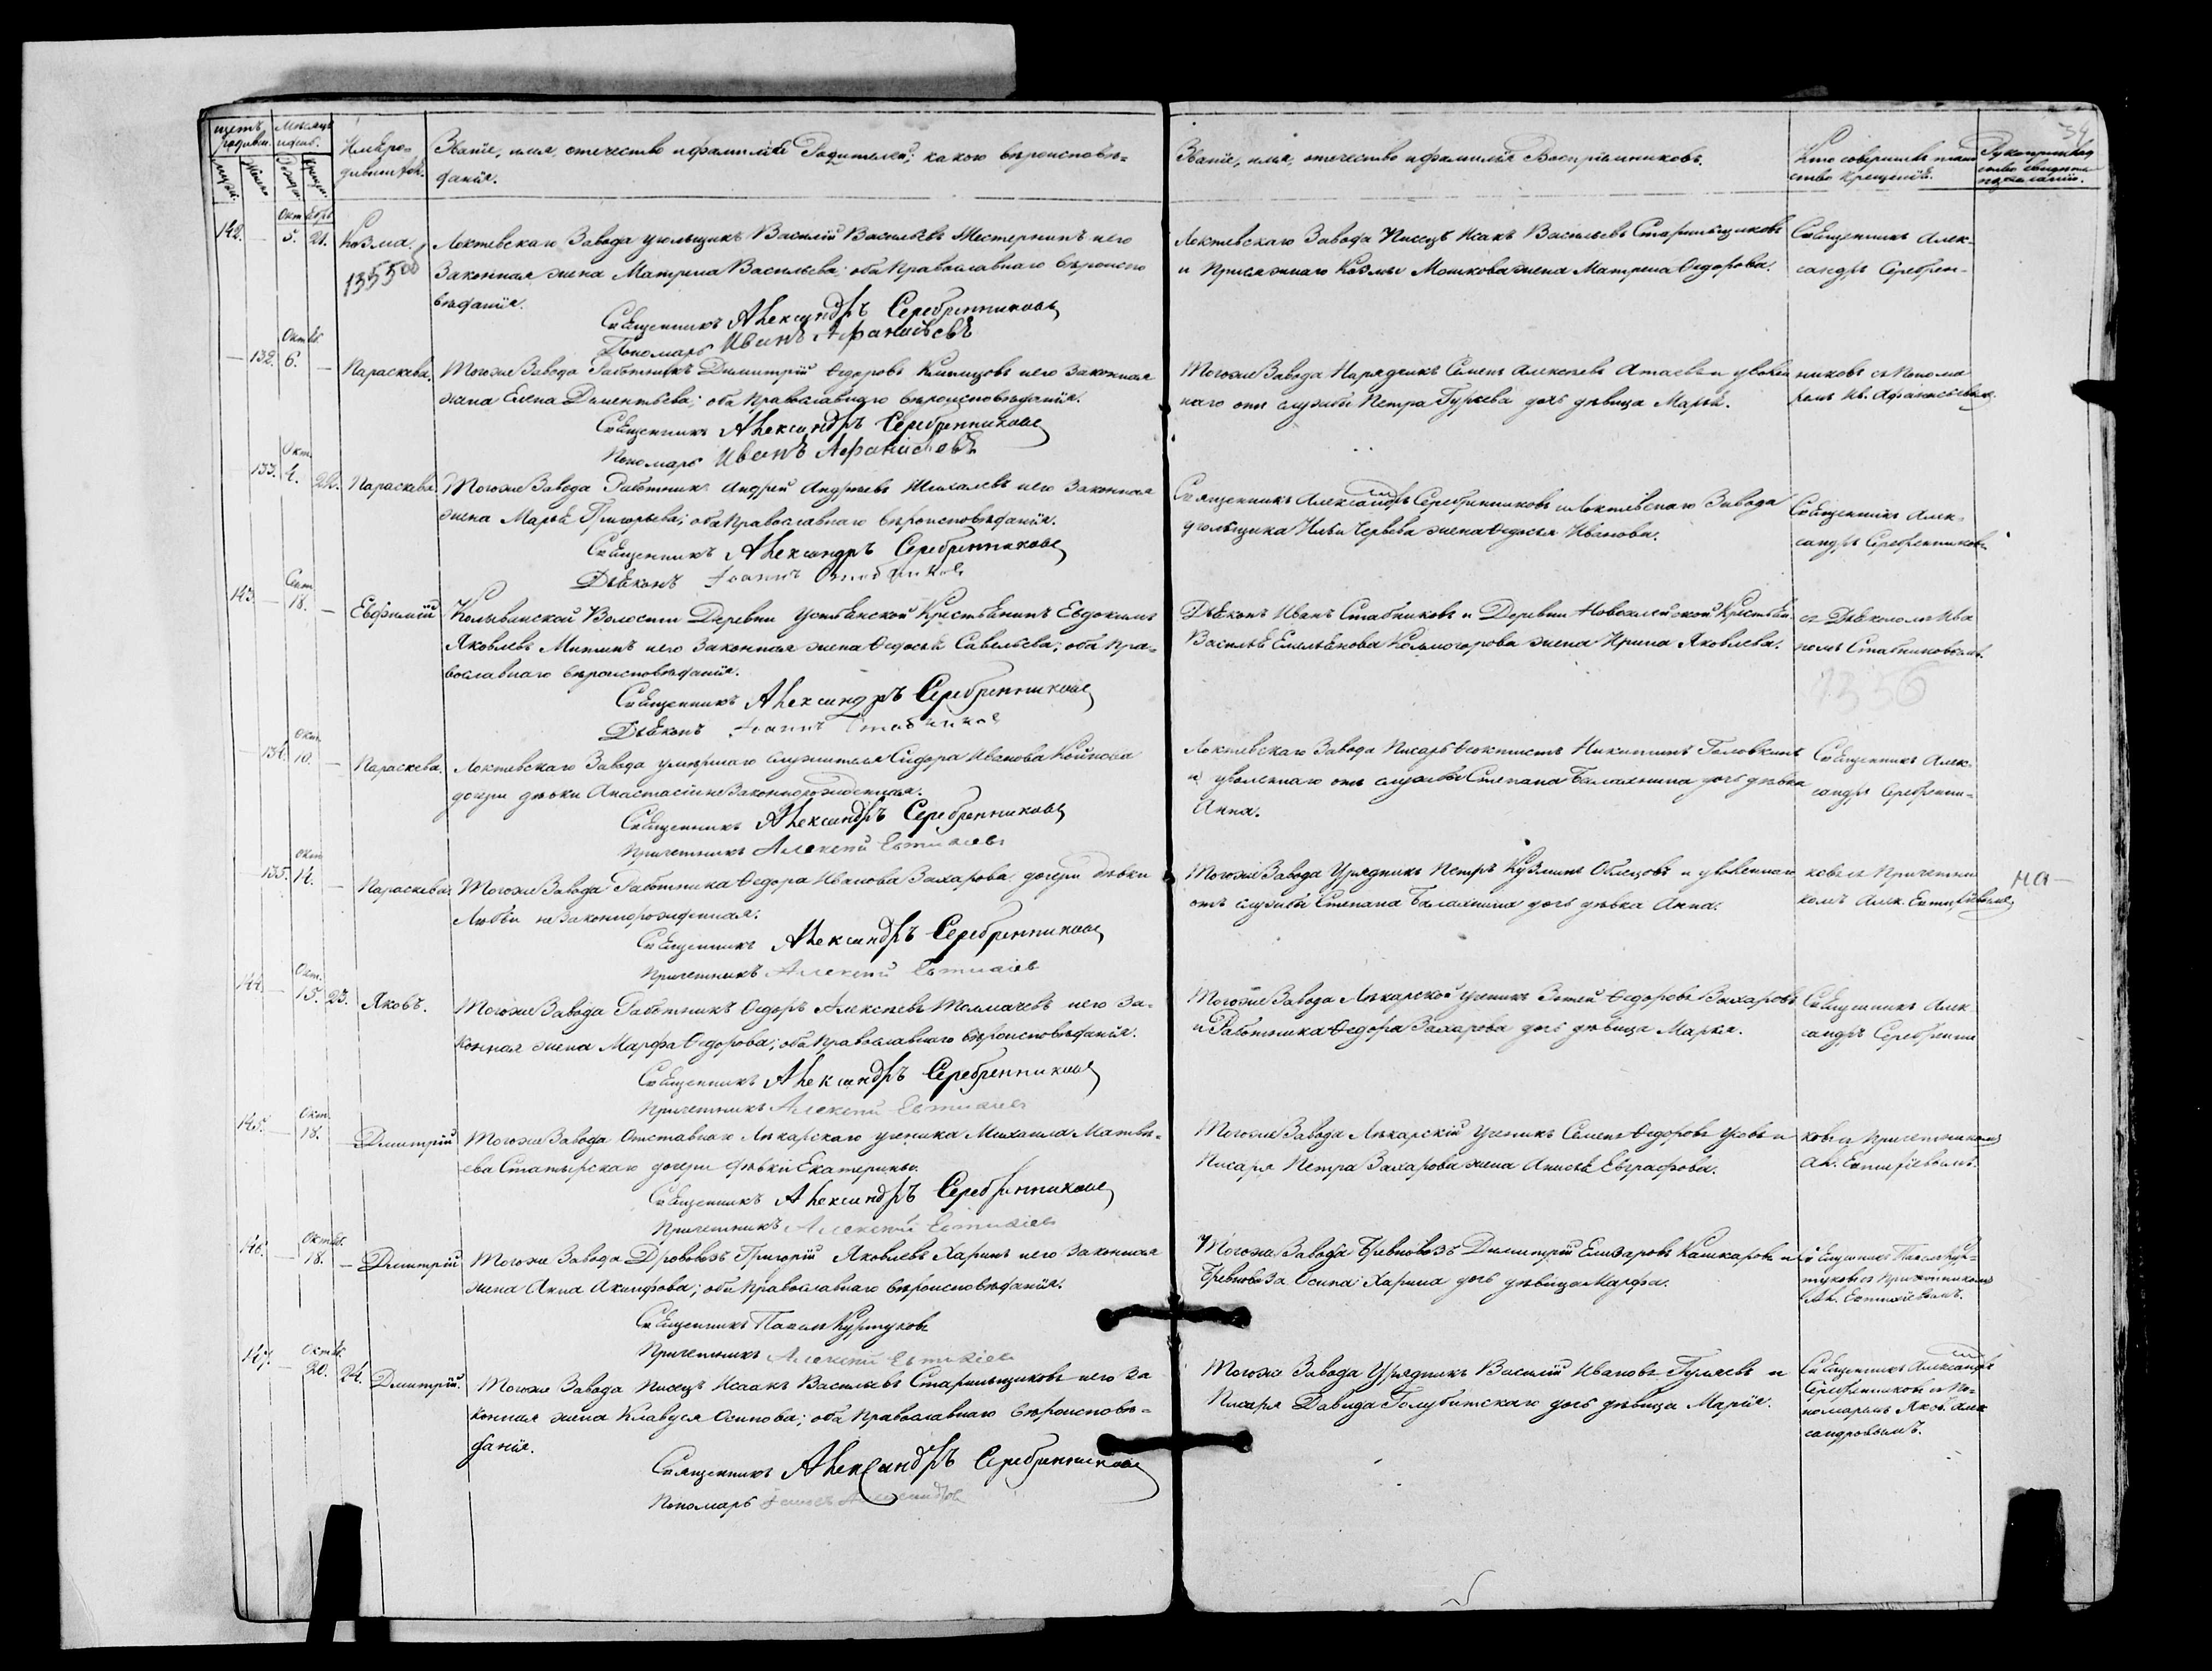 щетъ родивш. Мѣсяцъ и день.
Мужск. Женск. Рожден. Крещен.
Имѣро-
дившихъ.
Званіе, имя, отечество и фамилія Родителей; какого вѣроисповѣ-
данія.
Званіе, имя, отечество и фамилія Воспріемниковъ.
Кто совершилъ таин
ство крещенія.
34.
142. Октябрь 5. 21. Козма.
135500
Локтевскаго Завода угольщикъ Василій Васильевъ Шестернинъ и его
Законная жена Матрена Васильева; оба Православнаго вѣроиспо
вѣданія.
Священникъ Александръ Серебренниковъ
Пономарь Иванъ Афанасьевъ
Локтевскаго Завода Писецъ Исакъ Васильевъ Старильщиковъ
и Присяжнаго Козмы Мошкова жена Матрена Ѳедорова.
Священникъ Алек-
сандръ Серебрен-
132. Октяб. 6. Параскева.
Тогоже Завода Работникъ Димитрій Ѳедоровъ Климцовъ и его Законная
жена Елена Дементьева; оба Православнаго вѣроисповѣданія.
Священникъ Александръ Серебренниковъ
Пономарь Иванъ Афанасьевъ
Тогоже Завода Нарядчикъ Семенъ Алексѣевъ Атаевъ и уволен
наго отъ службы Петра Гурьева дочь дѣвица Марья.
никовъ съ Понома
ремъ Ив. Афанасьевымъ
133. Окт. 4. 22. Параскева
Тогоже Завода Работникъ Андрей Андреевъ Шихалевъ и его Законная
жена Марья Григорьева; оба Православнаго вѣроисповѣданія.
Священникъ Александръ Серебренниковъ
Дьяконъ Іоаннъ Стабниковъ
Священникъ Александръ Серебренниковъ и Локтевскаго Завода
угольщика Ильи Червева жена Ѳедосья Иванова.
Священникъ Алек-
сандръ Серебренниковъ
143. Сент. 18. Евфимій
Колыванской Волости Деревни Устьянской Крестьянинъ Евдокимъ
Яковлевъ Митинъ и его Законная жена Ѳедосья Савельева; оба Пра-
вославнаго вѣроисповѣданія.
Священникъ Александръ Серебренниковъ
Дьяконъ Іоаннъ Стабниковъ
Дьяконъ Иванъ Стабниковъ и Деревни Новоалейской Крестьян
Василья Емельянова Колмогорова жена Ирина Яковлева.
съ Дьякономъ Ива
номъ Стабниковымъ.
1356
134. Окт. 10. Параскева.
Локтевскаго Завода умершаго служителя Сидора Иванова Койнова
дочери дѣвки Анастасіи незаконнорожденная.
Священникъ Александръ Серебренниковъ
Причетникъ Алексѣй Евтифіевъ
Локтевскаго Завода Писарь Ѳеоктистъ Никитинъ Головкинъ
и уволеннаго отъ службы Степана Балахнина дочь дѣвка
Анна.
Священникъ Алек-
сандръ Серебренни-
135. Окт. 14. Параскева
Тогоже Завода Работника Ѳедора Иванова Захарова дочери дѣвки
Любви незаконнорожденная.
Священникъ Александръ Серебренниковъ
Причетникъ Алексѣй Евтифіевъ
Тогоже Завода Урядникъ Петръ Кузминъ Облецовъ и уволеннаго
отъ службы Степана Балахнина дочь дѣвка Анна.
ковъ съ Причетни
комъ Алек. Евтифіевымъ
на
144. Окт. 15. 23. Яковъ.
Тогоже Завода Работникъ Ѳедоръ Алексѣевъ Толмачевъ и его За-
конная жена Марфа Ѳедорова; оба Православнаго вѣроисповѣданія.
Священникъ Александръ Серебренниковъ
Причетникъ Алексѣй Евтифіевъ
Тогоже Завода Лѣкарской ученикъ Ѳедоровъ Захаровъ
и Работника Ѳедора Захарова дочь дѣвица Марья.
Священникъ Алек-
сандръ Серебренни
145. Окт. 18. Димитрій
Тогоже Завода Отставнаго Лѣкарскаго ученика Михаила Матвѣ-
ева дочери дѣвки Екатерины.
Священникъ Александръ Серебренниковъ
Причетникъ Алексѣй Евтифіевъ
Тогоже Завода Лѣкарскій ученикъ Семенъ Ѳедоровъ и
Писаря Петра Захарова жена Анисья Евграфова.
ковъ съ Причетникомъ
Ал. Евтифіевымъ.
146. Октяб. 18. Димитрій
Тогоже Завода Дрововозъ Григорій Яковлевъ Харинъ и его Законная
жена Анна Акинфова; оба Православнаго вѣроисповѣданія.
Священникъ Павелъ Куртуковъ
Причетникъ Алексѣй Евтифіевъ
Тогоже Завода Бревновозъ Димитрій Елизаровъ Кашкаровъ и
Бревновоза Осипа Харина дочь дѣвица Марфа.
Священникъ Павелъ Кур-
туковъ съ Причетникомъ
Ал. Евтифіевымъ.
147. Октяб. 20. 24. Димитрій.
Тогоже Завода Писецъ Исаакъ Васильевъ Старильщиковъ и его За
конная жена Клавдия Осипова; оба Православнаго вѣроисповѣ-
данія.
Священникъ Александръ Серебренниковъ
Пономарь Яковъ Александровъ
Тогоже Завода Урядникъ Василій Ивановъ Гуляевъ и
Писаря Давида Голубитскаго дочь дѣвица Марія.
Священникъ Александръ
Серебренниковъ съ По-
номаремъ Яков. Алек
сандровымъ.